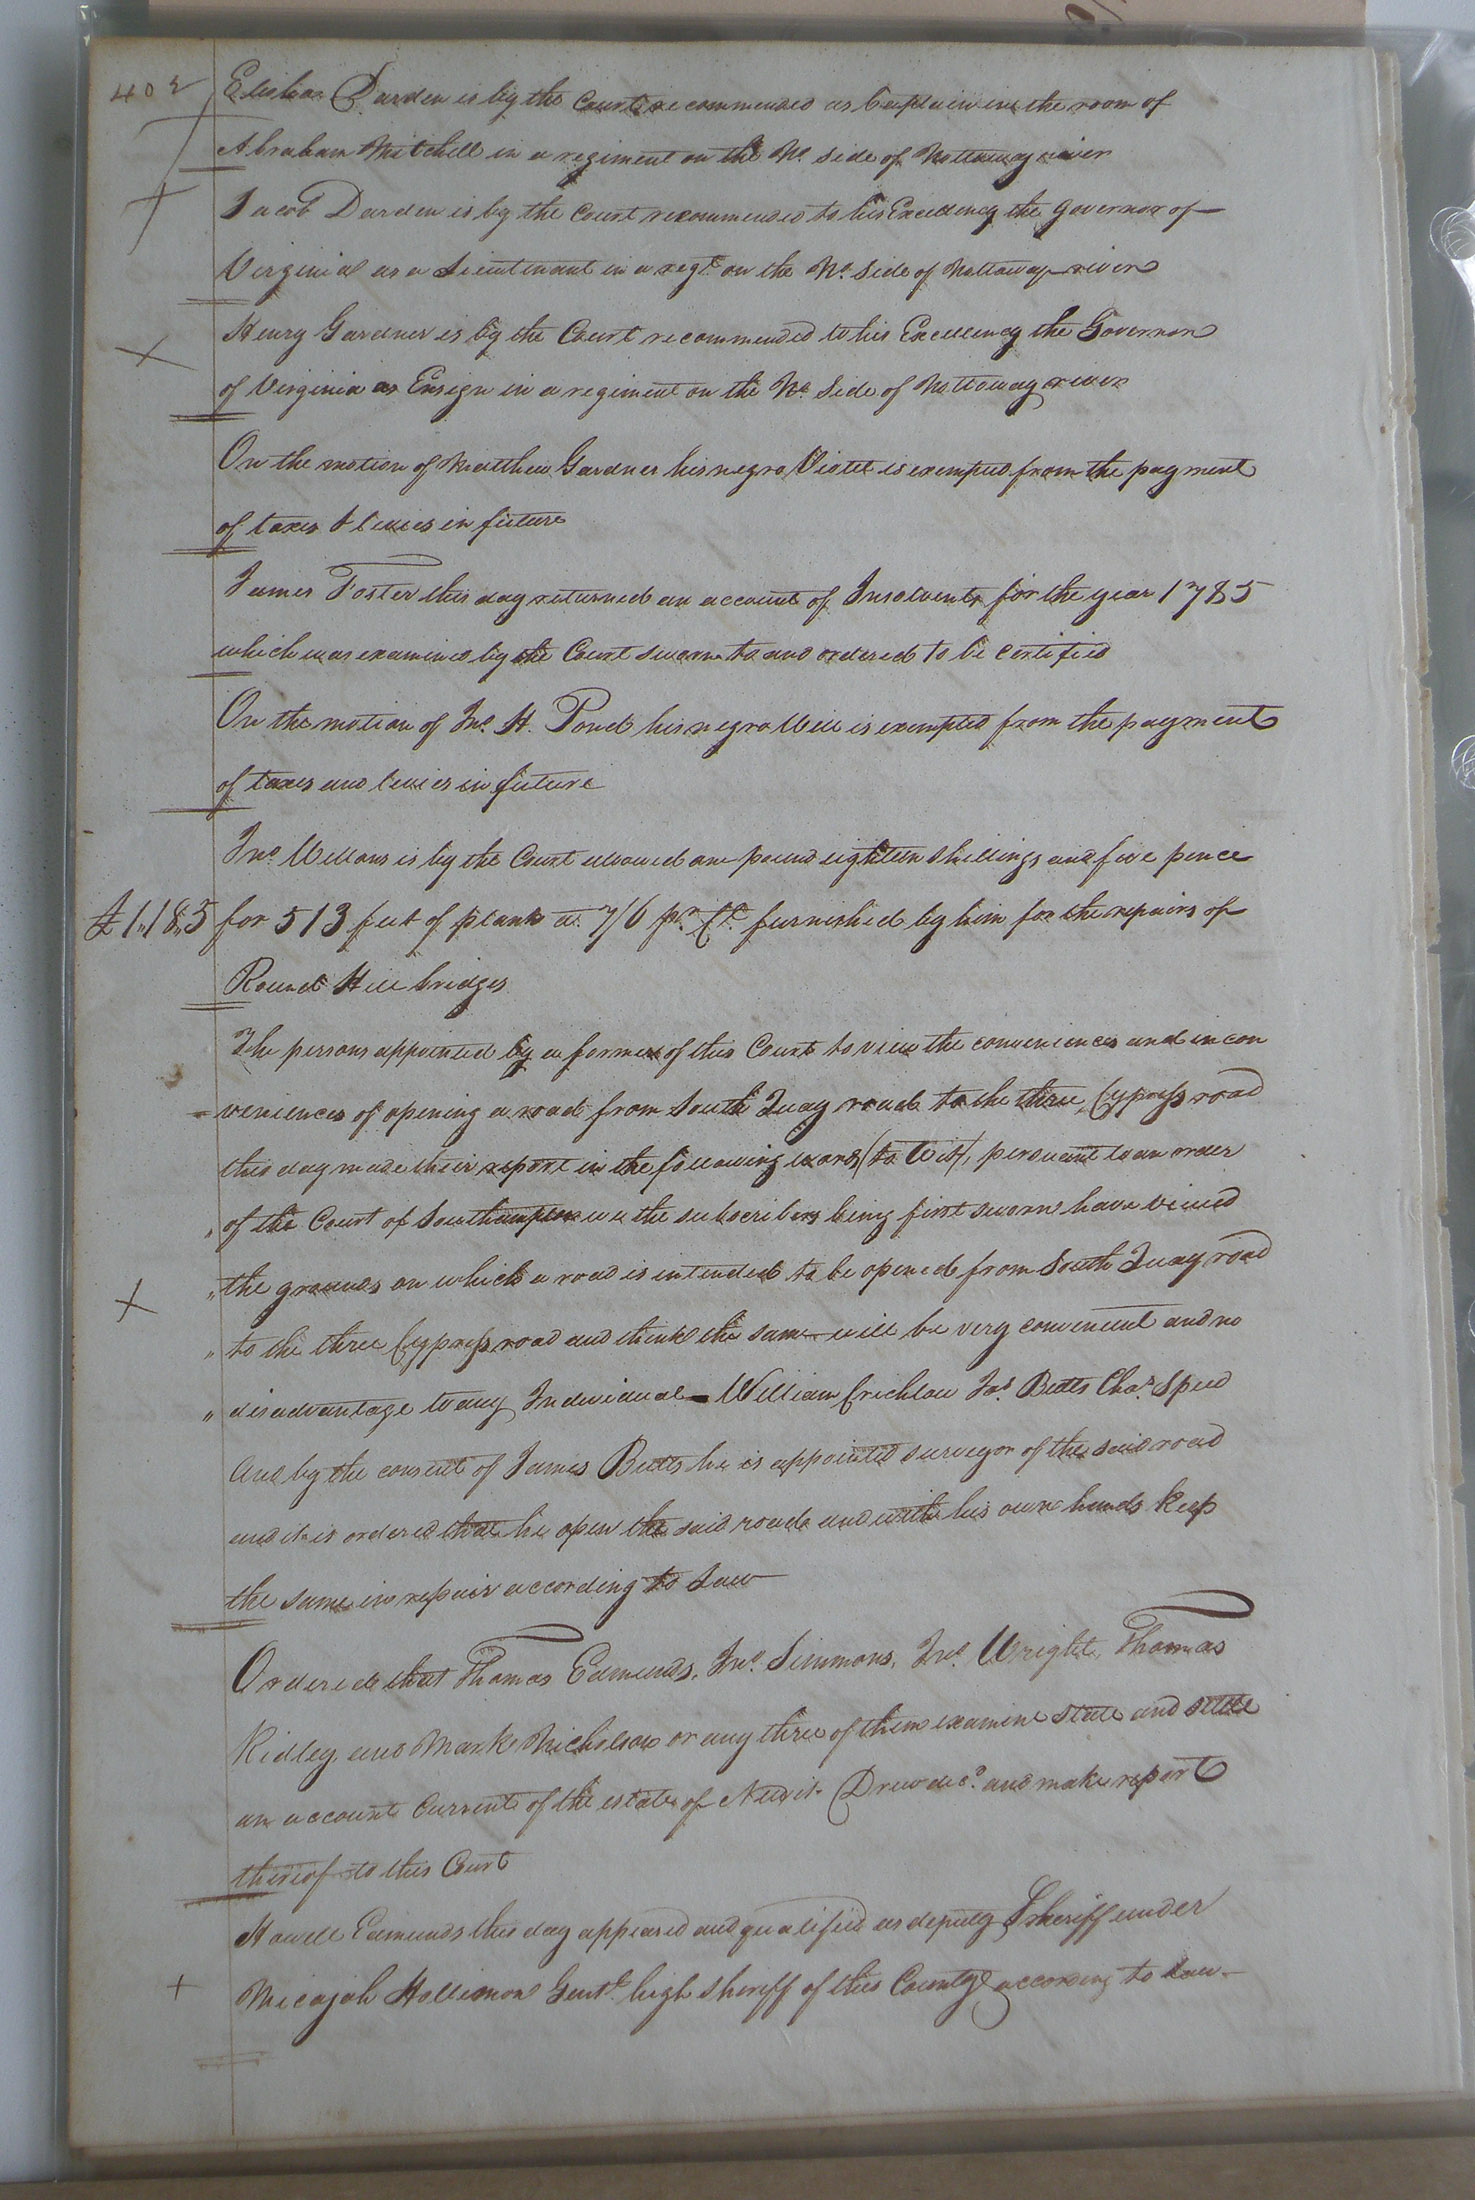 402
Elisha Darden is by the Court recommended as Captain in the room of
Abraham Mitchell in a regiment on the No. side of Nottoway river
Jacob Darden is by the Court recommended to his Excellency the Governor of
Virginia as a Lieutenant in a regt. on the No. Side of Nottoway river
Henry Gardner is by the Court recommended to his Excellency the Governor
of Virginia as Ensign in a regiment on the No. Side of Nottoway river
On the motion of Matthew Gardner his negro Violet is exempted from the payment
of taxes & levies in future
James Foster this day returned an account of Insolvents for the year 1785
which was examined by the Court sworn to and ordered to be certified
On the motion of Jno. H. Pond his negro Will is exempted from the payment
of taxes and levies in future
Jno. Wellons is by the Court allowed one pound eighteen Shillings and five pence
£1,,18,,5 for 513 feet of plank a. 7/6 pr. Ct. furnished by him for the repairs of
Round Hill bridges
The persons appointed by a former of this Court to view the conveniences and incon
veniences of opening a road from South Quay road to the three Cypress road
this day made their report in the following words (to Wit), persuant to an order
" of the Court of Southampton we the subscribers being first sworn have viewed
" the grounds on which a road is intended to be opened from South Quay road
" to the three Cypress road and think the same will be very convenient and no
" disadvantage to any Individual - William Crichlow Jas. Betts Chas. Speed
And by the consent of James Betts he is appointed surveyor of the said road
and it is ordered that he open the said road and with his own hands keep
the same in repair according to Law
Ordered that Thomas Edmunds, Jno. Simmons, Jno. Wright, Thomas
Ridley and Mark Nicholson or any three of them examine State and settle
an account Current of the estate of Newit Drew decd. and make report
thereof to this Court
Howell Edmunds this day appeared and qualified as deputy Sheriff under
Micajah Holliman Gentl. high Sheriff of this County according to Law